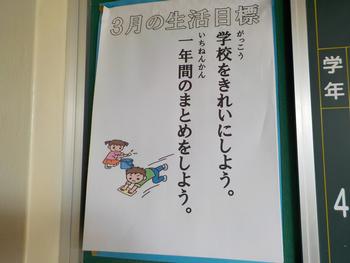 3月の生活目標
学校をきれいにしよう。
がっこう
一年間のまとめをしよう。
いちねんかん
学年
4